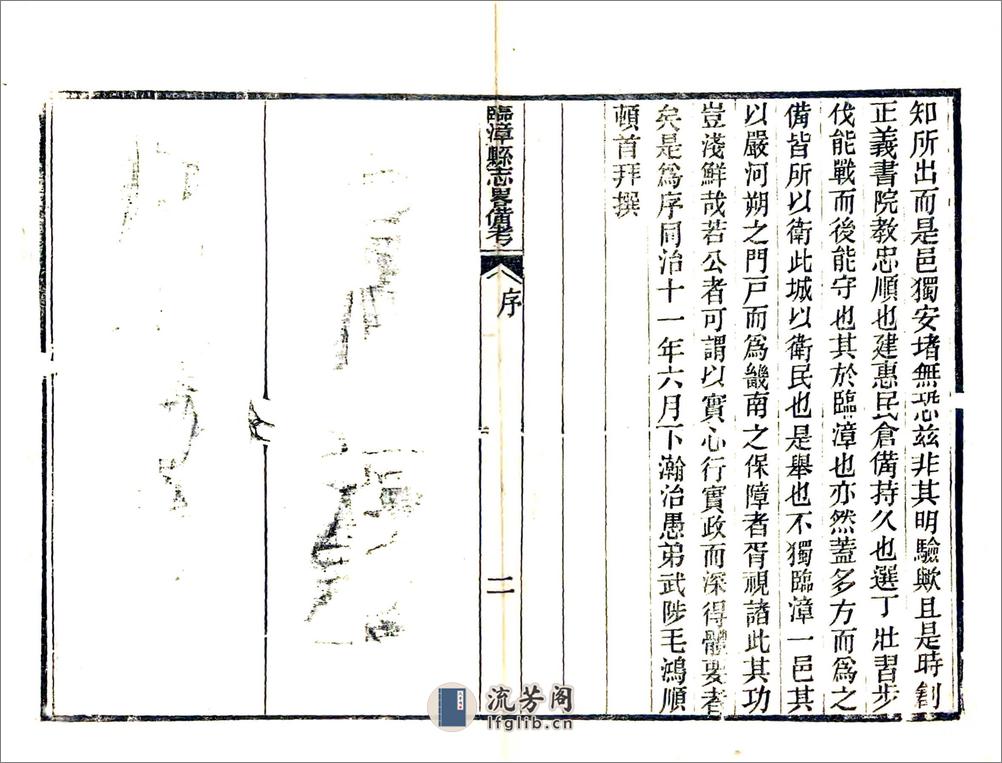 知所出而是邑獨安堵無恐茲非其明驗歟且是時創
正義書院教忠順也建惠民倉備持久也選丁壯習步
伐能戰而後能守也其於臨漳也亦然蓋多方而爲之
備皆所以衛此城以衛民也是舉也不獨臨漳一邑其
以嚴河朔之門戶而爲畿南之保障者胥視諸此其功
豈淺鮮哉若公者可謂以實心行實政而深得體要者
矣是爲序同治十一年六月下瀚治愚弟武陟毛鴻順
頓首拜撰
臨漳縣志畧備考
序
二
流芳阁
lfglib.cn